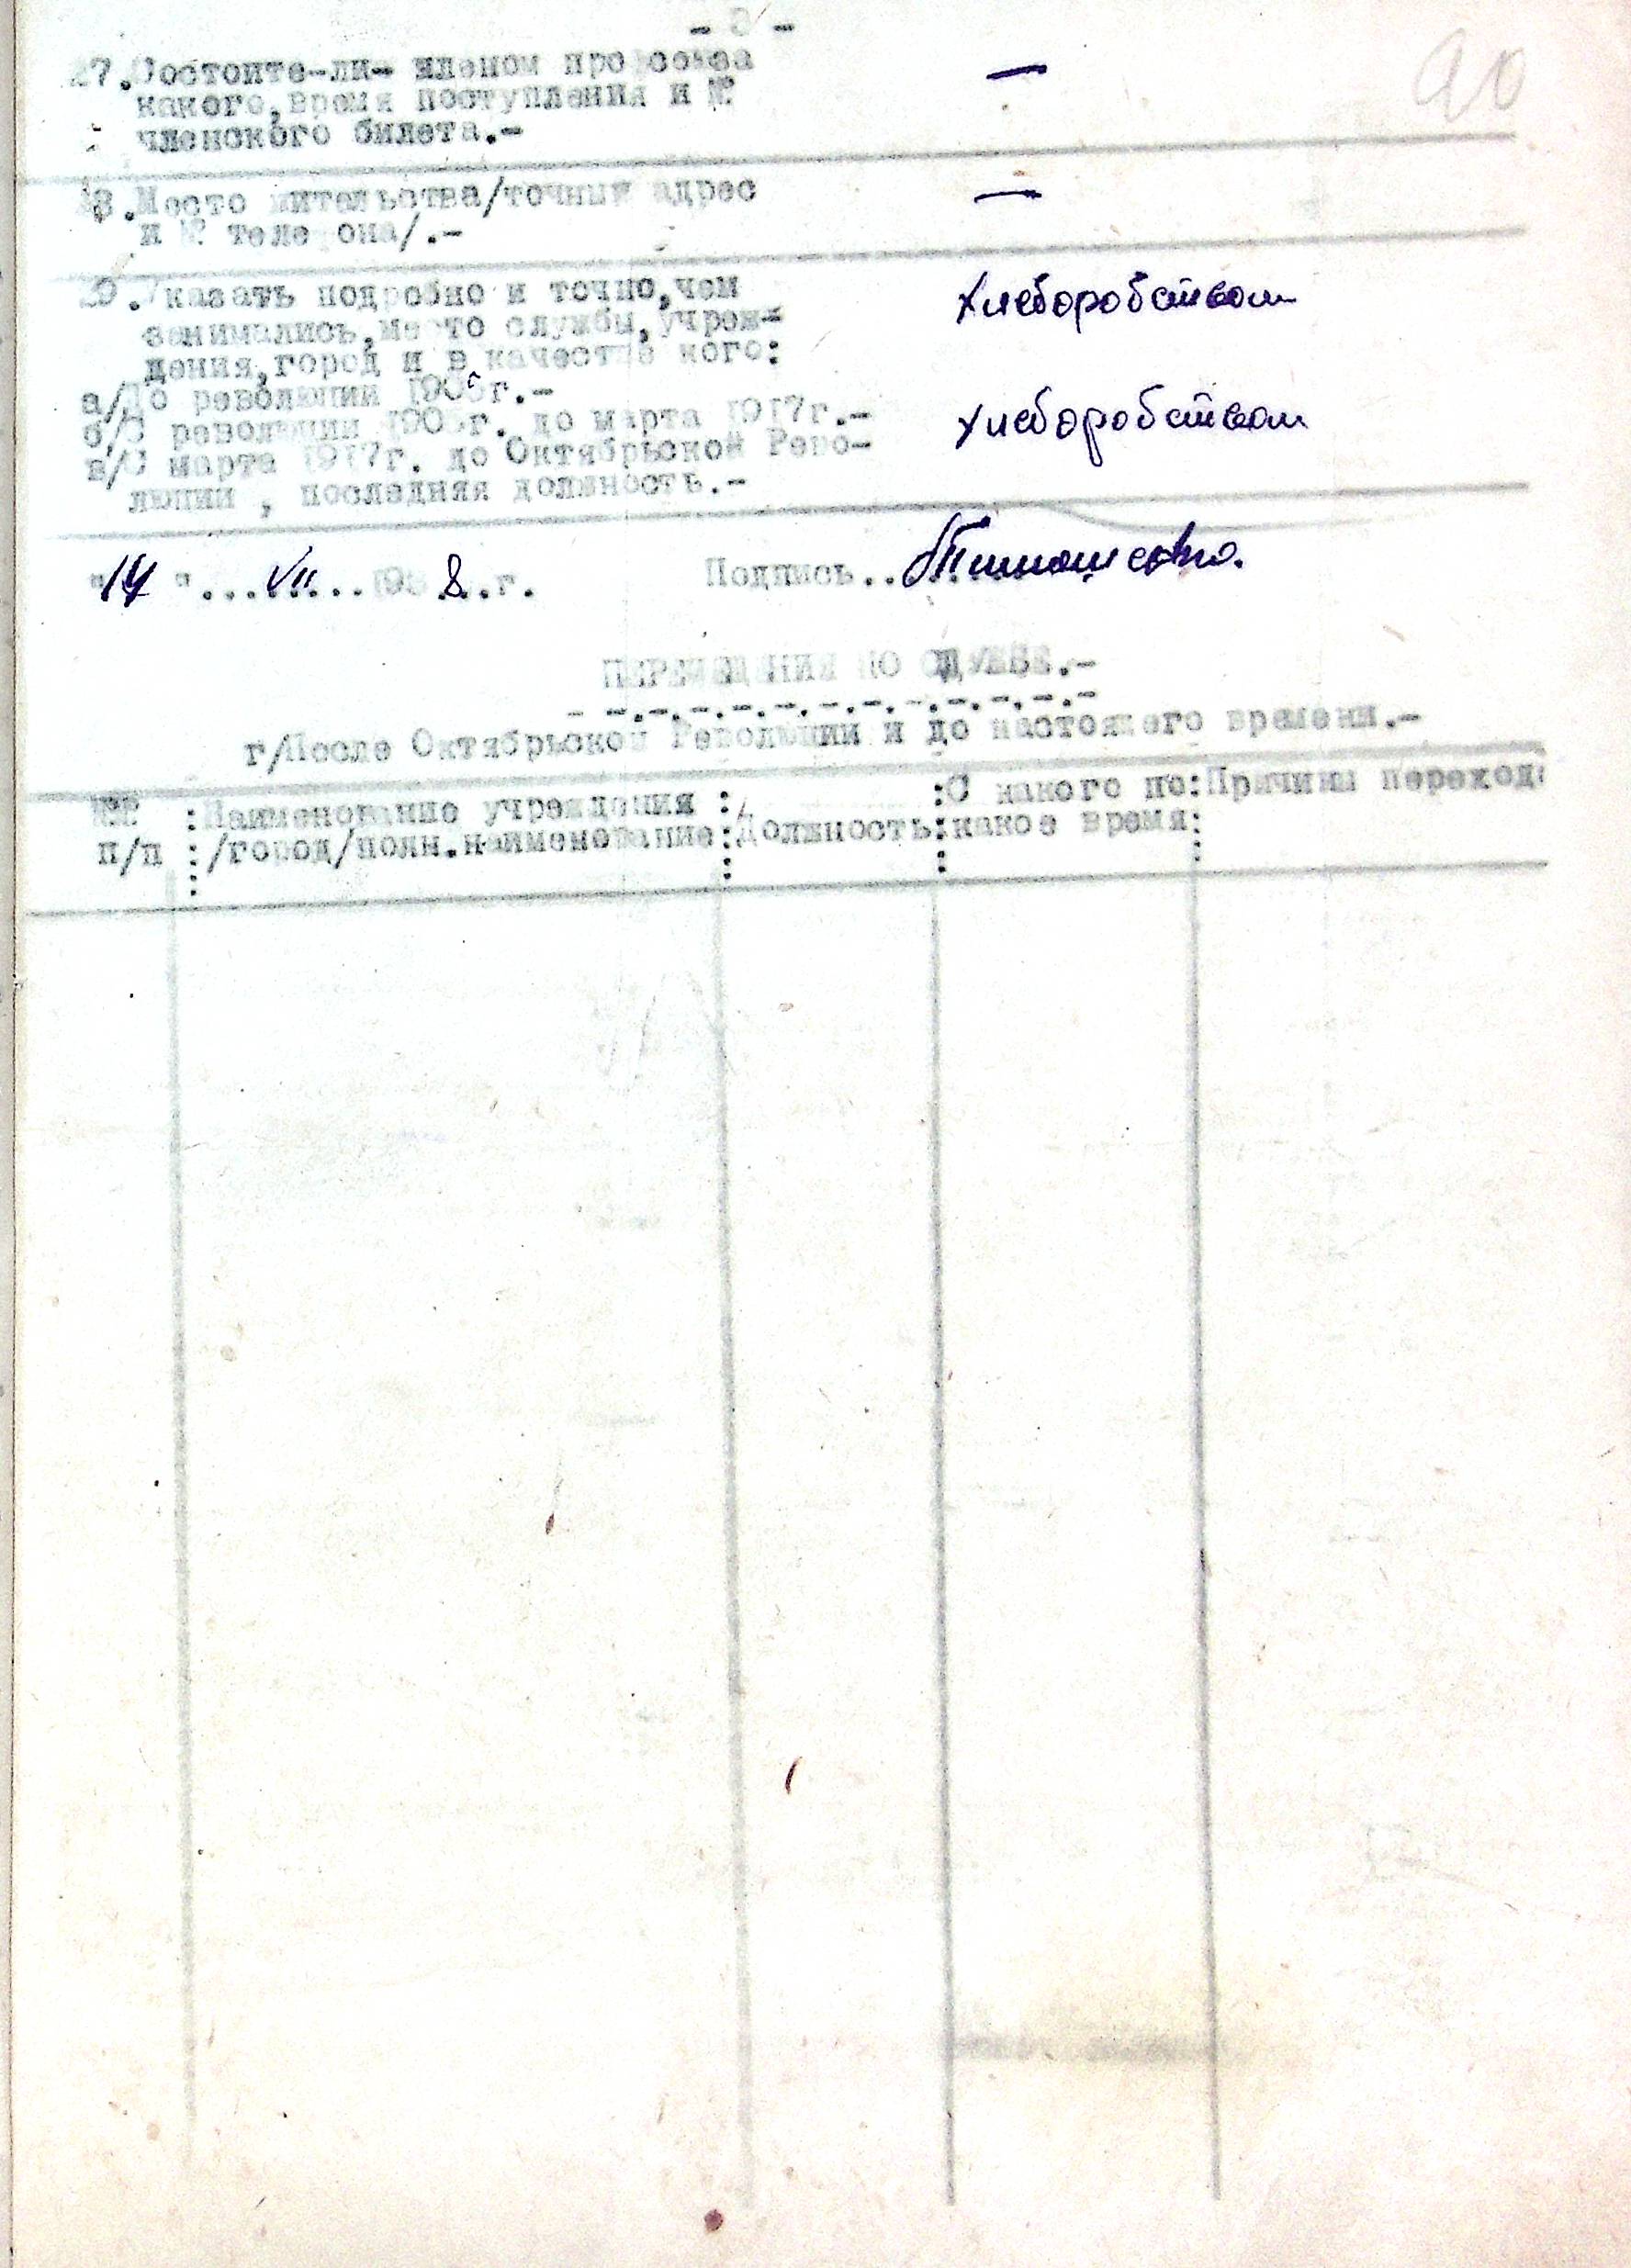 - 3 -
90
27.Состоите-ли- членом профсоюза —
какого,время поступления и №
членского билета.-
28.Место жительства/точный адрес —
и № телефона/.-
29.Указать подробно и точно,чем хлеборобством
занимались,место службы,учреж-
дения,город и в качестве кого:
а/До революции 1905г.-
б/С революции 1905г. до марта 1917г.- хлеборобством
в/С марта 1917г. до Октябрьской Рево-
люции , последняя должность.-
"14"...VII...1938..г. Подпись..
ПЕРЕМЕЩЕНИЯ ПО СЛУЖБЕ.-
- -.-.-.-.-.-.-.-.-.-.-
г/После Октябрьской Революции и до настоящего времени.-
№№ :Наименование учреждения : :С какого по:Причины перехода
п/п :/город/полн.наименование:Должность:какое время: